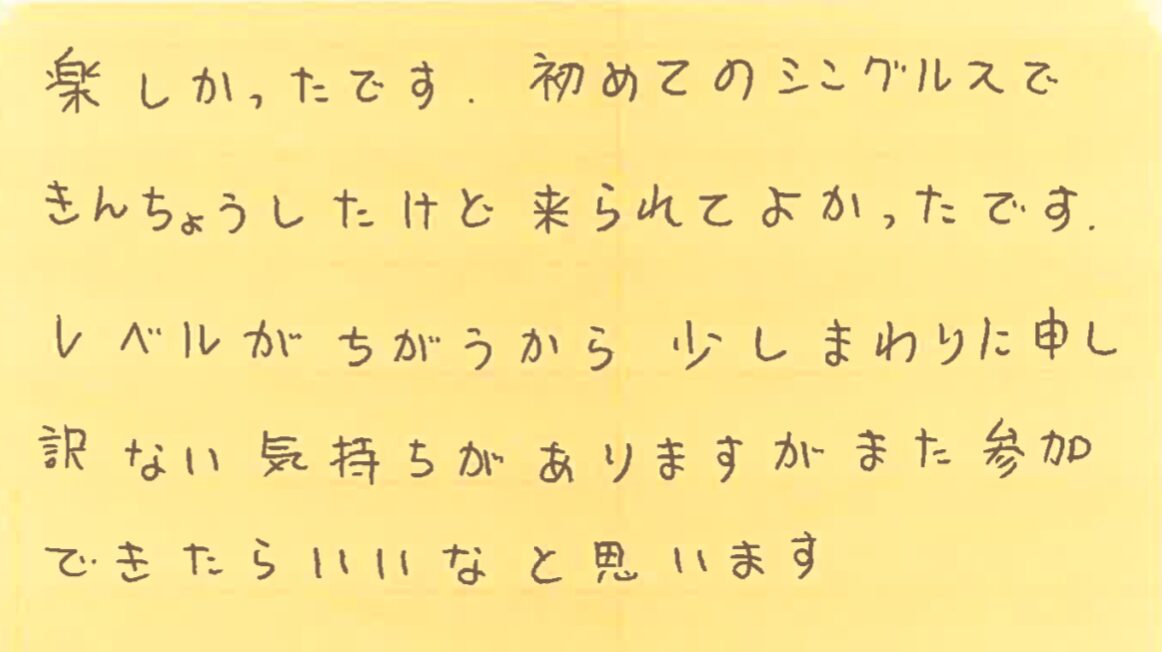 楽しかったです. 初めてのシングルスで
きんちょうしたけど来られてよかったです.
レベルがちがうから少しまわりに申し
訳ない気持ちがありますがまた参加
できたらいいなと思います